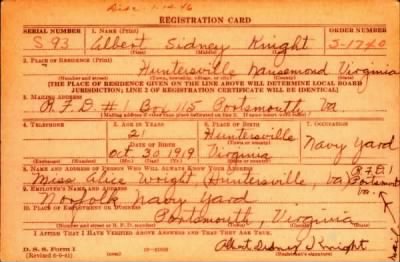 Disc. 1-14-46
REGISTRATION CARD
SERIAL NUMBER 1. NAME (Print) ORDER NUMBER
S 93 Albert Sidney Knight S-1740
(First) (Middle) (Last)
2. PLACE OF RESIDENCE (Print)
Huntersville Nansemond Virginia
(Number and street) (Town, township, village, or city) (County) (State)
[THE PLACE OF RESIDENCE GIVEN ON THE LINE ABOVE WILL DETERMINE LOCAL BOARD
JURISDICTION; LINE 2 OF REGISTRATION CERTIFICATE WILL BE IDENTICAL]
3. MAILING ADDRESS
R.F.D. #1 Box 115 Portsmouth, Va
[Mailing address if other than place indicated on line 2. If same insert word same]
4. TELEPHONE 5. AGE IN YEARS 6. PLACE OF BIRTH 7. OCCUPATION
21 Huntersville
DATE OF BIRTH (Town or county) Navy Yard
Oct 30 1919 Virginia
(Exchange) (Number) (Mo.) (Day) (Yr.) (State or country)
8. NAME AND ADDRESS OF PERSON WHO WILL ALWAYS KNOW YOUR ADDRESS R.F.D.1
Miss Alice Wright (Huntersville, Va) Portsmouth
Va.
9. EMPLOYER'S NAME AND ADDRESS
Norfolk Navy Yard
10. PLACE OF EMPLOYMENT OR BUSINESS
Portsmouth, Virginia
(Number and street or R. F. D. number) (Town) (County) (State)
I AFFIRM THAT I HAVE VERIFIED ABOVE ANSWERS AND THAT THEY ARE TRUE.
D. S. S. Form 1
Albert Sidney Knight